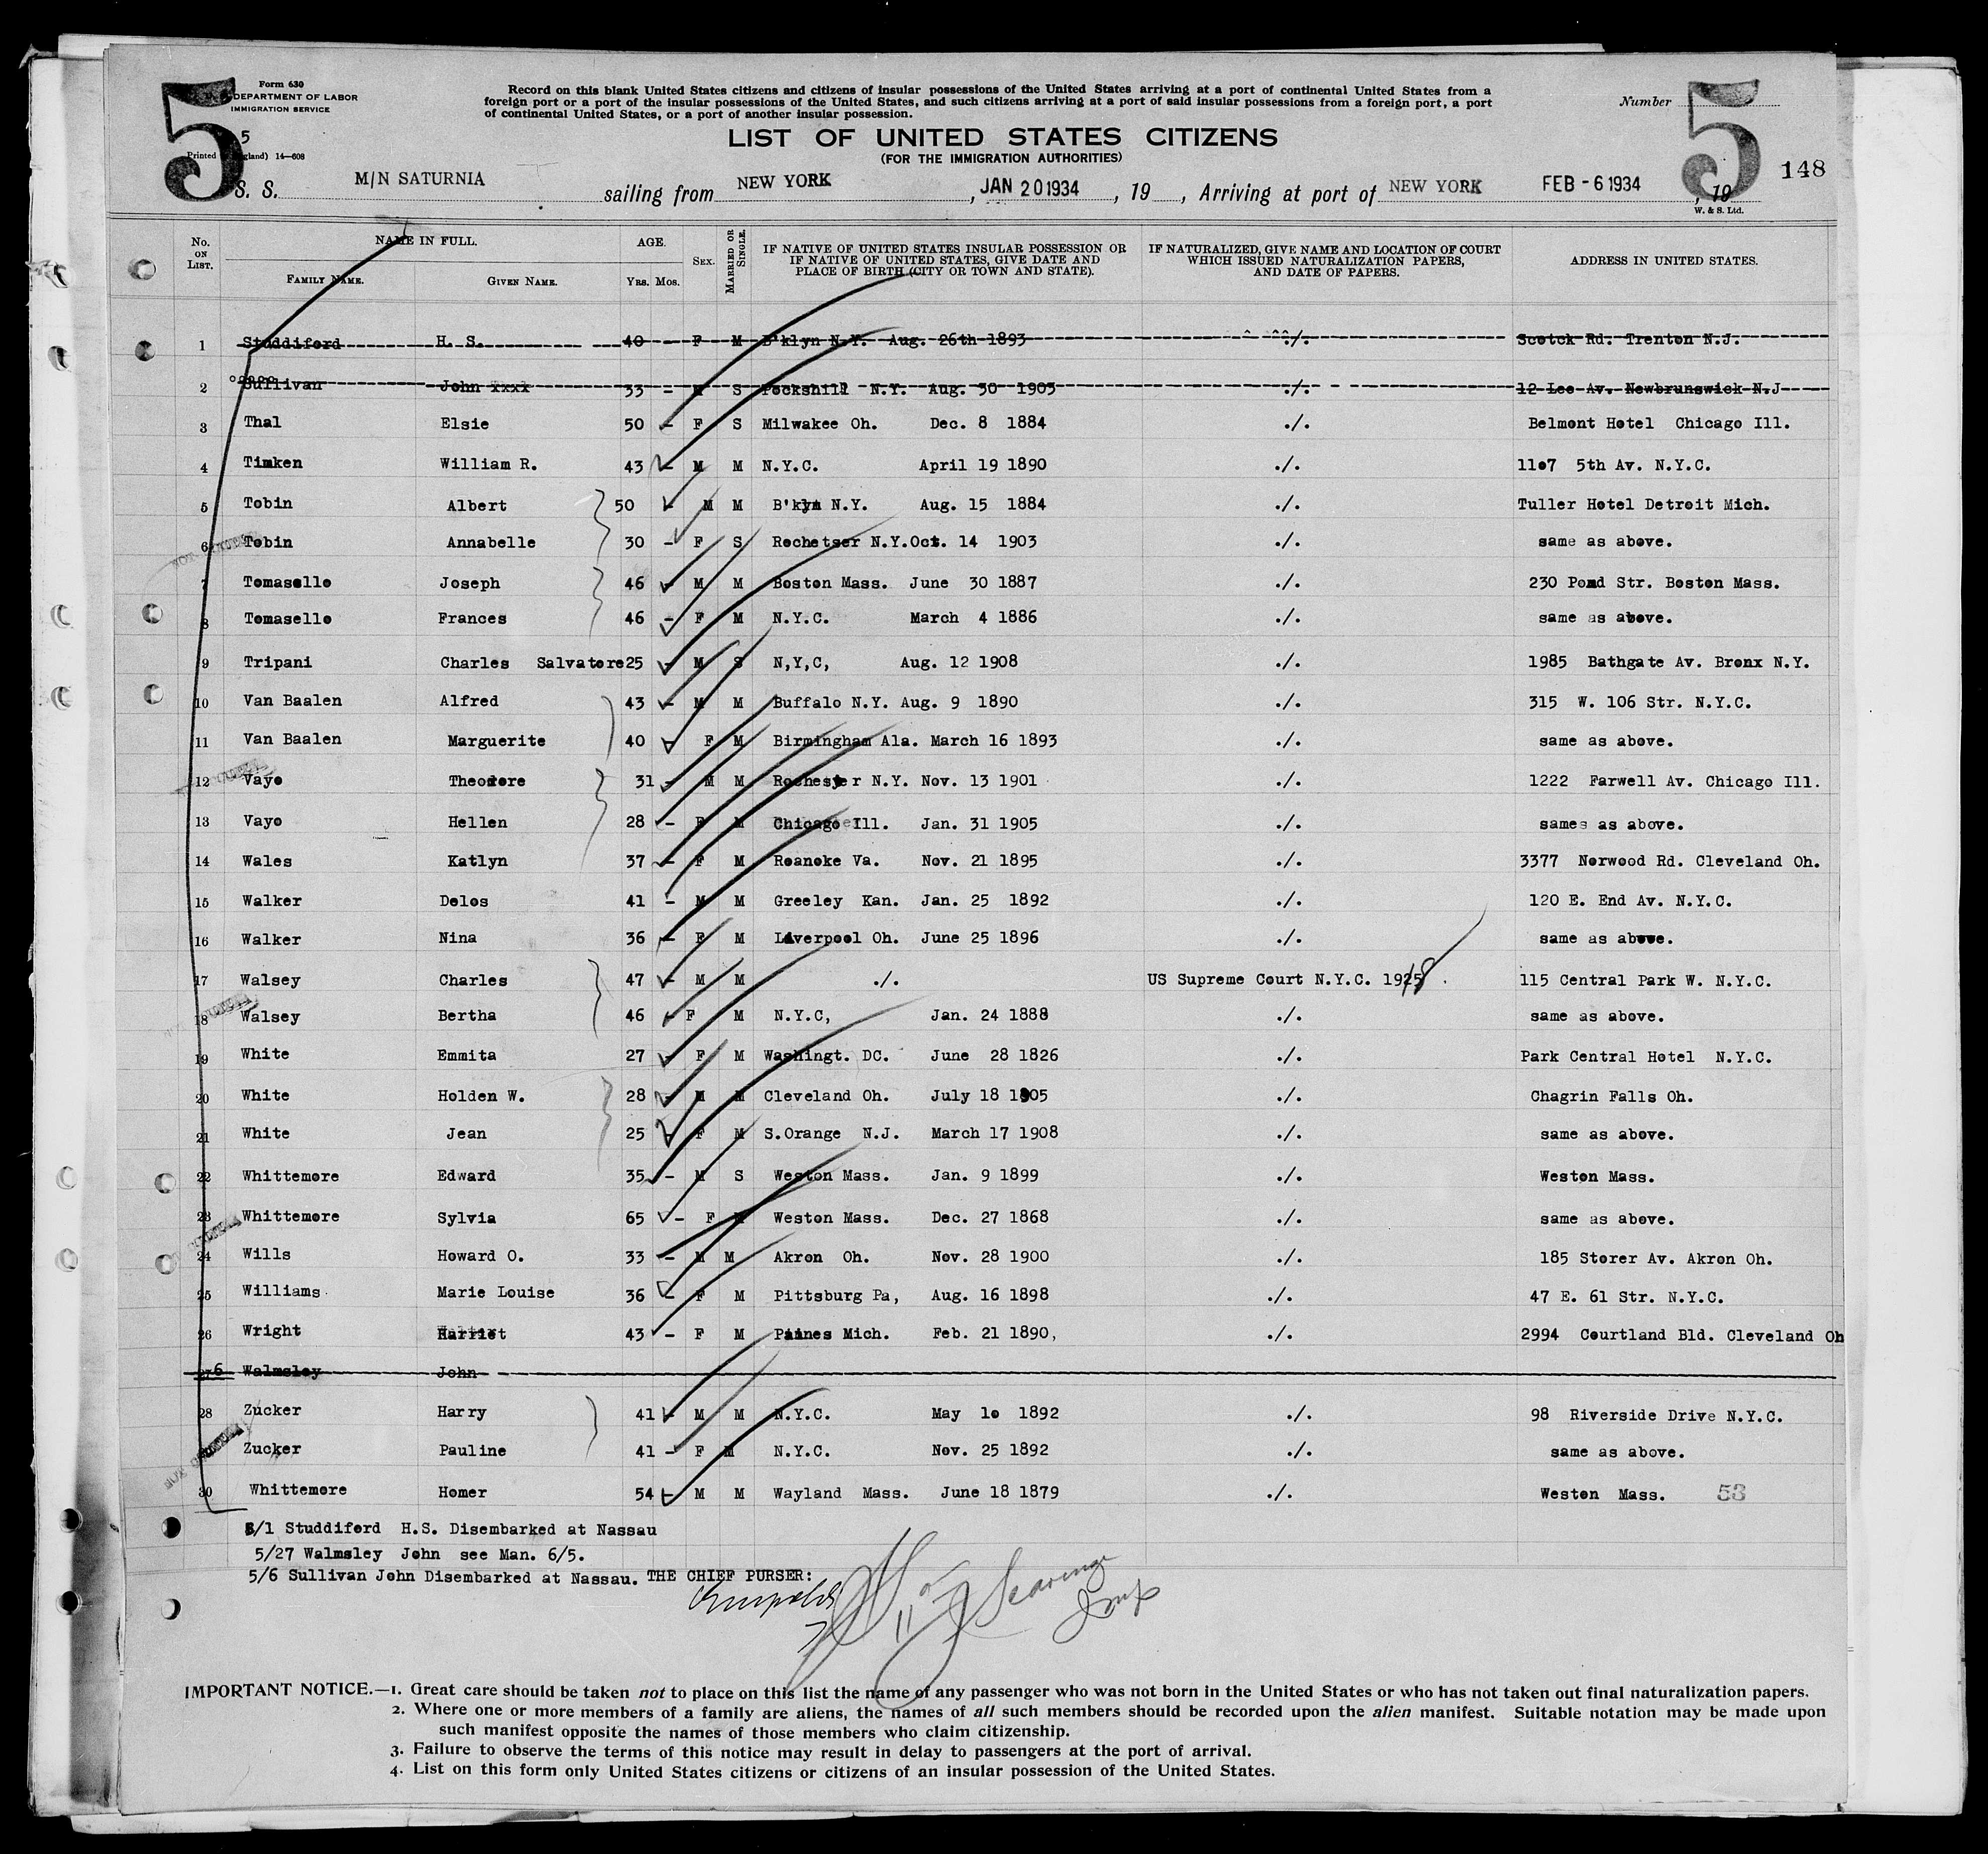 5
Form 630
DEPARTMENT OF LABOR
IMMIGRATION SERVICE
5
Printed 14—608
Record on this blank United States citizens and citizens of insular possessions of the United States arriving at a port of continental United States from a
foreign port or a port of the insular possessions of the United States, and such citizens arriving at a port of said insular possessions from a foreign port, a port
of continental United States, or a port of another insular possession.
Number
5
148
LIST OF UNITED STATES CITIZENS
(FOR THE IMMIGRATION AUTHORITIES)
S. S. M/N SATURNIA sailing from NEW YORK, JAN 20 1934, 19 , Arriving at port of NEW YORK FEB - 6 1934, 19
W. & S. Ltd.
No. ON LIST. NAME IN FULL. FAMILY NAME. GIVEN NAME. AGE. YRS. MOS. SEX. MARRIED OR SINGLE. IF NATIVE OF UNITED STATES INSULAR POSSESSION OR IF NATIVE OF UNITED STATES, GIVE DATE AND PLACE OF BIRTH (CITY OR TOWN AND STATE). IF NATURALIZED, GIVE NAME AND LOCATION OF COURT WHICH ISSUED NATURALIZATION PAPERS, AND DATE OF PAPERS. ADDRESS IN UNITED STATES.
1 Studdiford H. S. 40 - F M B'klyn N.Y. Aug. 26th 1893 ./. Scotck Rd. Trenton N.J.
2 Sullivan John xxxx 33 - M S Peckshill N.Y. Aug. 30 1903 ./. 12 Lee Av. Newbrunswick N.J
3 Thal Elsie 50 - F S Milwakee Oh. Dec. 8 1884 ./. Belmont Hotel Chicago Ill.
4 Timken William R. 43 - M M N.Y.C. April 19 1890 ./. 11o7 5th Av. N.Y.C.
5 Tobin Albert 50 - M M B'kyn N.Y. Aug. 15 1884 ./. Tuller Hotel Detroit Mich.
6 Tobin Annabelle 30 - F S Rochetser N.Y.Oct. 14 1903 ./. same as above.
7 Tomasello Joseph 46 - M M Boston Mass. June 30 1887 ./. 230 Pond Str. Boston Mass.
8 Tomasello Frances 46 - F M N.Y.C. March 4 1886 ./. same as above.
9 Tripani Charles Salvatore 25 - M S N,Y,C, Aug. 12 1908 ./. 1985 Bathgate Av. Bronx N.Y.
10 Van Baalen Alfred 43 - M M Buffalo N.Y. Aug. 9 1890 ./. 315 W. 106 Str. N.Y.C.
11 Van Baalen Marguerite 40 - F M Birmingham Ala. March 16 1893 ./. same as above.
12 Vayo Theodore 31 - M M Rochester N.Y. Nov. 13 1901 ./. 1222 Farwell Av. Chicago Ill.
13 Vayo Hellen 28 - F M Chicago Ill. Jan. 31 1905 ./. sames as above.
14 Wales Katlyn 37 - F M Roanoke Va. Nov. 21 1895 ./. 3377 Norwood Rd. Cleveland Oh.
15 Walker Delos 41 - M M Greeley Kan. Jan. 25 1892 ./. 120 E. End Av. N.Y.C.
16 Walker Nina 36 - F M Liverpool Oh. June 25 1896 ./. same as above.
17 Walsey Charles 47 - M M ./. US Supreme Court N.Y.C. 1925 . 115 Central Park W. N.Y.C.
18 Walsey Bertha 46 - F M N.Y.C, Jan. 24 1888 ./. same as above.
19 White Emmita 27 - F M Washingt. DC. June 28 1826 ./. Park Central Hotel N.Y.C.
20 White Holden W. 28 - M M Cleveland Oh. July 18 1905 ./. Chagrin Falls Oh.
21 White Jean 25 - F M S.Orange N.J. March 17 1908 ./. same as above.
22 Whittemore Edward 35 - M S Weston Mass. Jan. 9 1899 ./. Weston Mass.
23 Whittemore Sylvia 65 - F M Weston Mass. Dec. 27 1868 ./. same as above.
24 Wills Howard O. 33 - M M Akron Oh. Nov. 28 1900 ./. 185 Storer Av. Akron Oh.
25 Williams Marie Louise 36 - F M Pittsburg Pa, Aug. 16 1898 ./. 47 E. 61 Str. N.Y.C.
26 Wright Harriet 43 - F M Paines Mich. Feb. 21 1890, ./. 2994 Courtland Bld. Cleveland Oh
6 Walmsley John
28 Zucker Harry 41 - M M N.Y.C. May 1o 1892 ./. 98 Riverside Drive N.Y.C.
Zucker Pauline 41 - F M N.Y.C. Nov. 25 1892 ./. same as above.
30 Whittemore Homer 54 - M M Wayland Mass. June 18 1879 ./. Weston Mass. 53
5/1 Studdiford H.S. Disembarked at Nassau
5/27 Walmsley John see Man. 6/5.
5/6 Sullivan John Disembarked at Nassau. THE CHIEF PURSER:
IMPORTANT NOTICE.—1. Great care should be taken not to place on this list the name of any passenger who was not born in the United States or who has not taken out final naturalization papers.
2. Where one or more members of a family are aliens, the names of all such members should be recorded upon the alien manifest. Suitable notation may be made upon
such manifest opposite the names of those members who claim citizenship.
3. Failure to observe the terms of this notice may result in delay to passengers at the port of arrival.
4. List on this form only United States citizens or citizens of an insular possession of the United States.